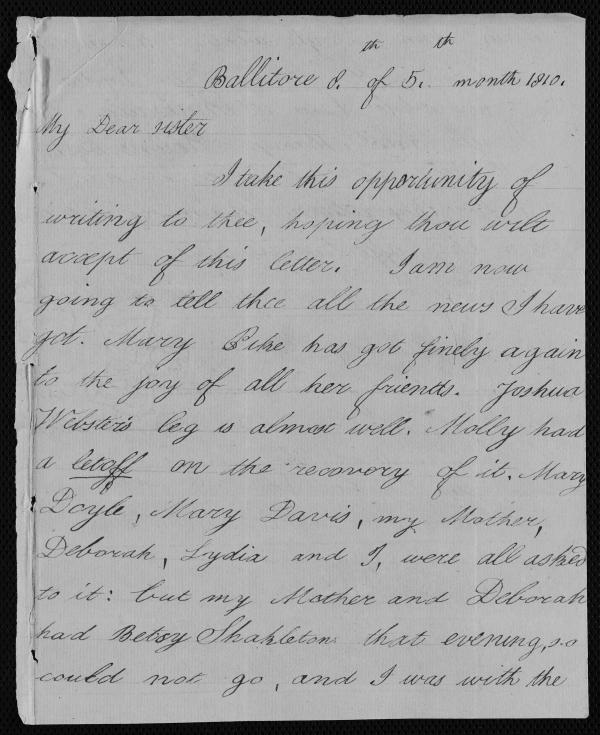 Ballitore 8.th of 5.th month 1810.
My Dear sister
I take this opportunity of
writing to thee, hoping thou wilt
accept of this letter. I am now
going to tell thee all the news I have
got. Mary Pike has got finely again
to the joy of all her friends. Joshua
Webster's leg is almost well. Molly had
a letoff on the recovery of it. Mary
Doyle, Mary Davis, my Mother,
Deborah, Lydia and I, were all asked
to it: but my Mother and Deborah
had Betsy Shakleton that evening, so
could not go, and I was with the